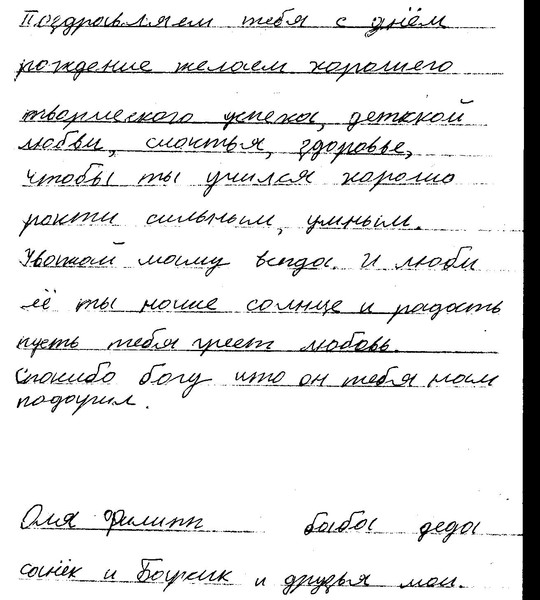 Поздравляем тебя с днём
рождение желаем хорошего
творческого успеха, детской
любви, счастья, здоровье,
чтобы ты учился хорошо
расти сильным, умным.
Уважай маму всегда. И люби
её ты наше солнце и радость
пусть тебя греет любовь.
Спасибо богу что он тебя нам
подарил.
Оля Филипп баба деда
санёк и Барсик и друзья мои.